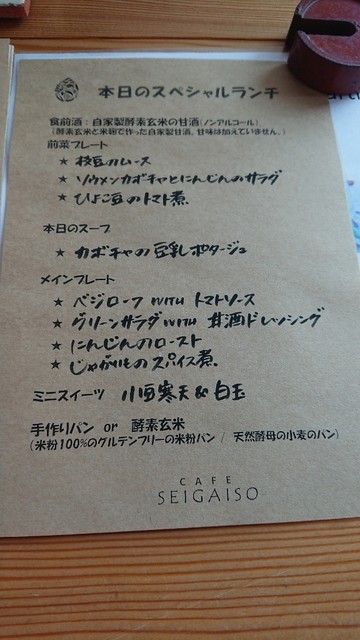 本日のスペシャルランチ
食前酒：自家製酵素玄米の甘酒(ノンアルコール)
(酵素玄米と米麹で作った自家製甘酒。甘味は加えていません。)
前菜プレート
★ 枝豆のムース
★ ソウメンカボチャとにんじんのサラダ
★ ひよこ豆のトマト煮
本日のスープ
★ カボチャの豆乳ポタージュ
メインプレート
★ ベジローフ WITH トマトソース
★ グリーンサラダ WITH 甘酒ドレッシング
★ にんじんのロースト
★ じゃがいものスパイス煮
ミニスイーツ 小豆寒天&白玉
手作りパン or 酵素玄米
(米粉100%のグルテンフリーの米粉パン / 天然酵母の小麦のパン)
CAFE
SEIGAISO